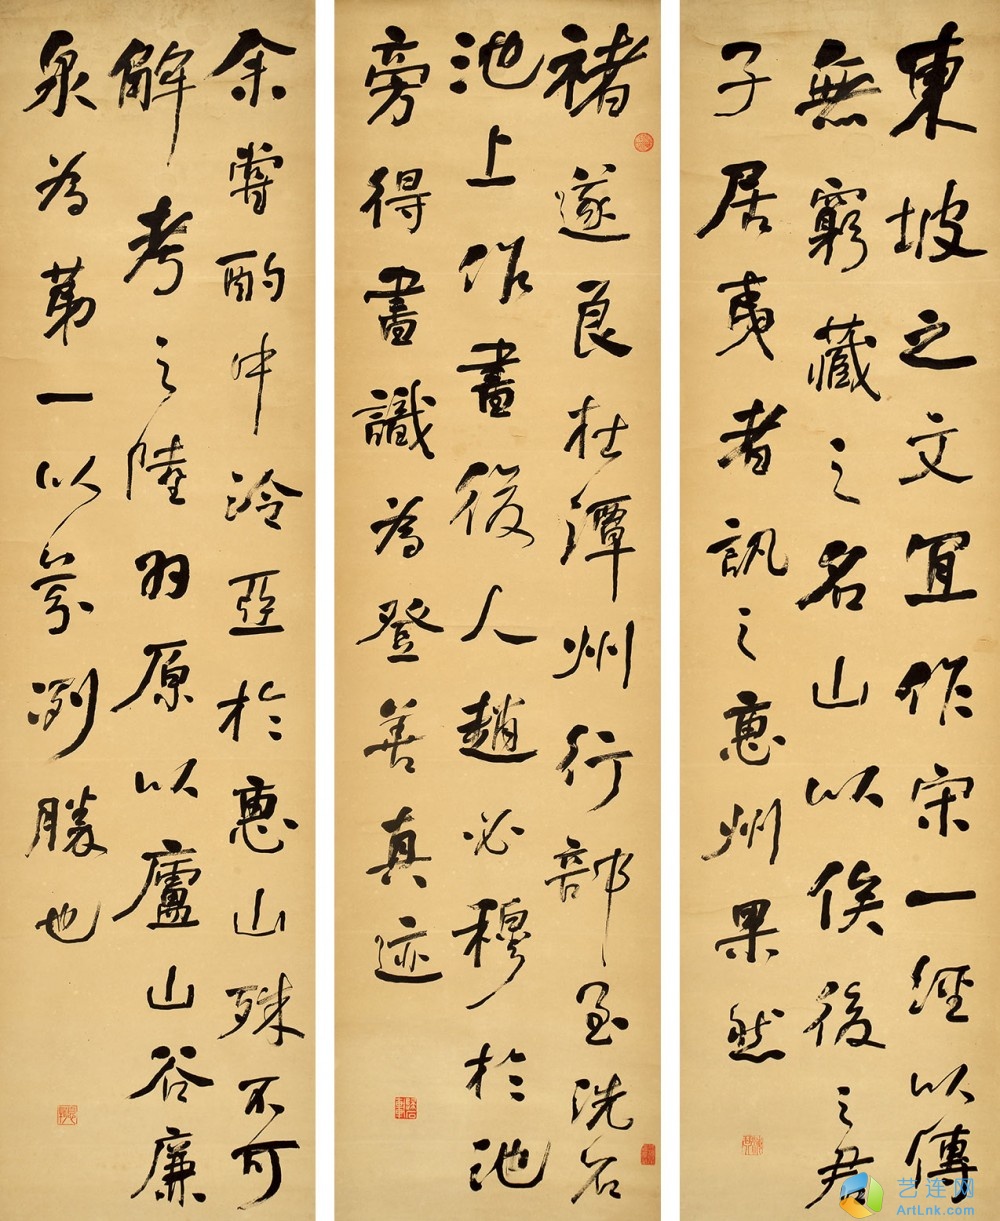 東坡之文宜作宋一經以傳
無窮藏之名山以俟後之君
子居夷者訊之惠州果然
褚遂良在潭州行部至洗石
池上作書後人趙必穆於池
旁得書識為登善真迹
余嘗酌中泠亞於惠山殊不可
解考之陸羽原以廬山谷廉
泉為第一以芬洌勝也
艺连网
ArtLnk.com